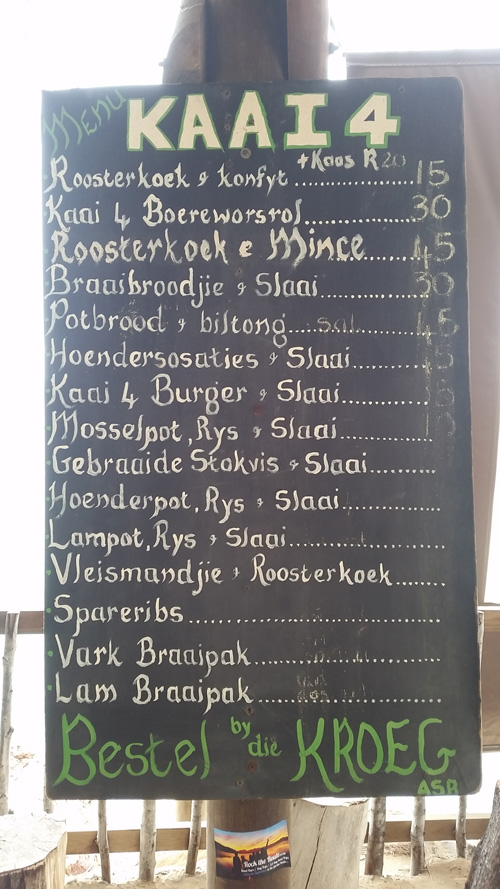 Menu
KAAI 4
+Kaas R20
Roosterkoek & konfyt ............... 15
Kaai 4 Boereworsrol............... 30
Roosterkoek & Mince....... 45
Braaibroodjie & Slaai............ 30
Potbrood & biltong.... 45
Hoendersosaties & Slaai..........
Kaai 4 Burger & Slaai............
Mosselpot, Rys & Slaai............
Gebraaide Stokvis & Slaai........
Hoenderpot, Rys & Slaai............
Lampot, Rys & Slaai....................
Vleismandjie & Roosterkoek.......
Spareribs.................................
Vark Braaipak..........................
Lam Braaipak..........................
Bestel by die KROEG
ASB
Rock the